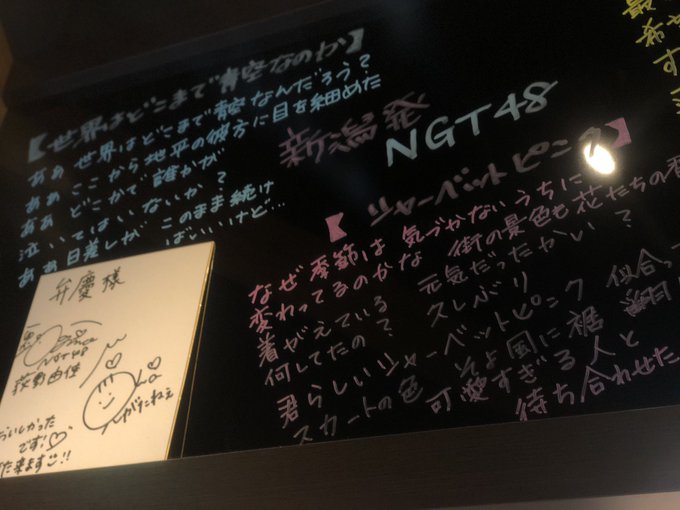 【世界はどこまで青空なのか】
ああ 世界はどこまで青空なんだろう?
ああ ここから地平の彼方に目を細めた
ああ どこかで誰かが
泣いてはいないか?
ああ 日差しが このまま続け
ばいいけど…
新潟発
NGT48
【シャーベットピンク】
なぜ 季節は 気づかないうちに
変わってるのかな 街の景色も花たちの香
着がえている 元気だったかい?
何してたの? 久しぶり
君らしいシャーベットピンク 似合っ
スカートの色 そよ風に裾
可愛すぎる人と
待ち合わせた
弁慶様
NGT48
荻野由佳
がたねぇ
おいしかった
です!
た来ます!!
最
希
す